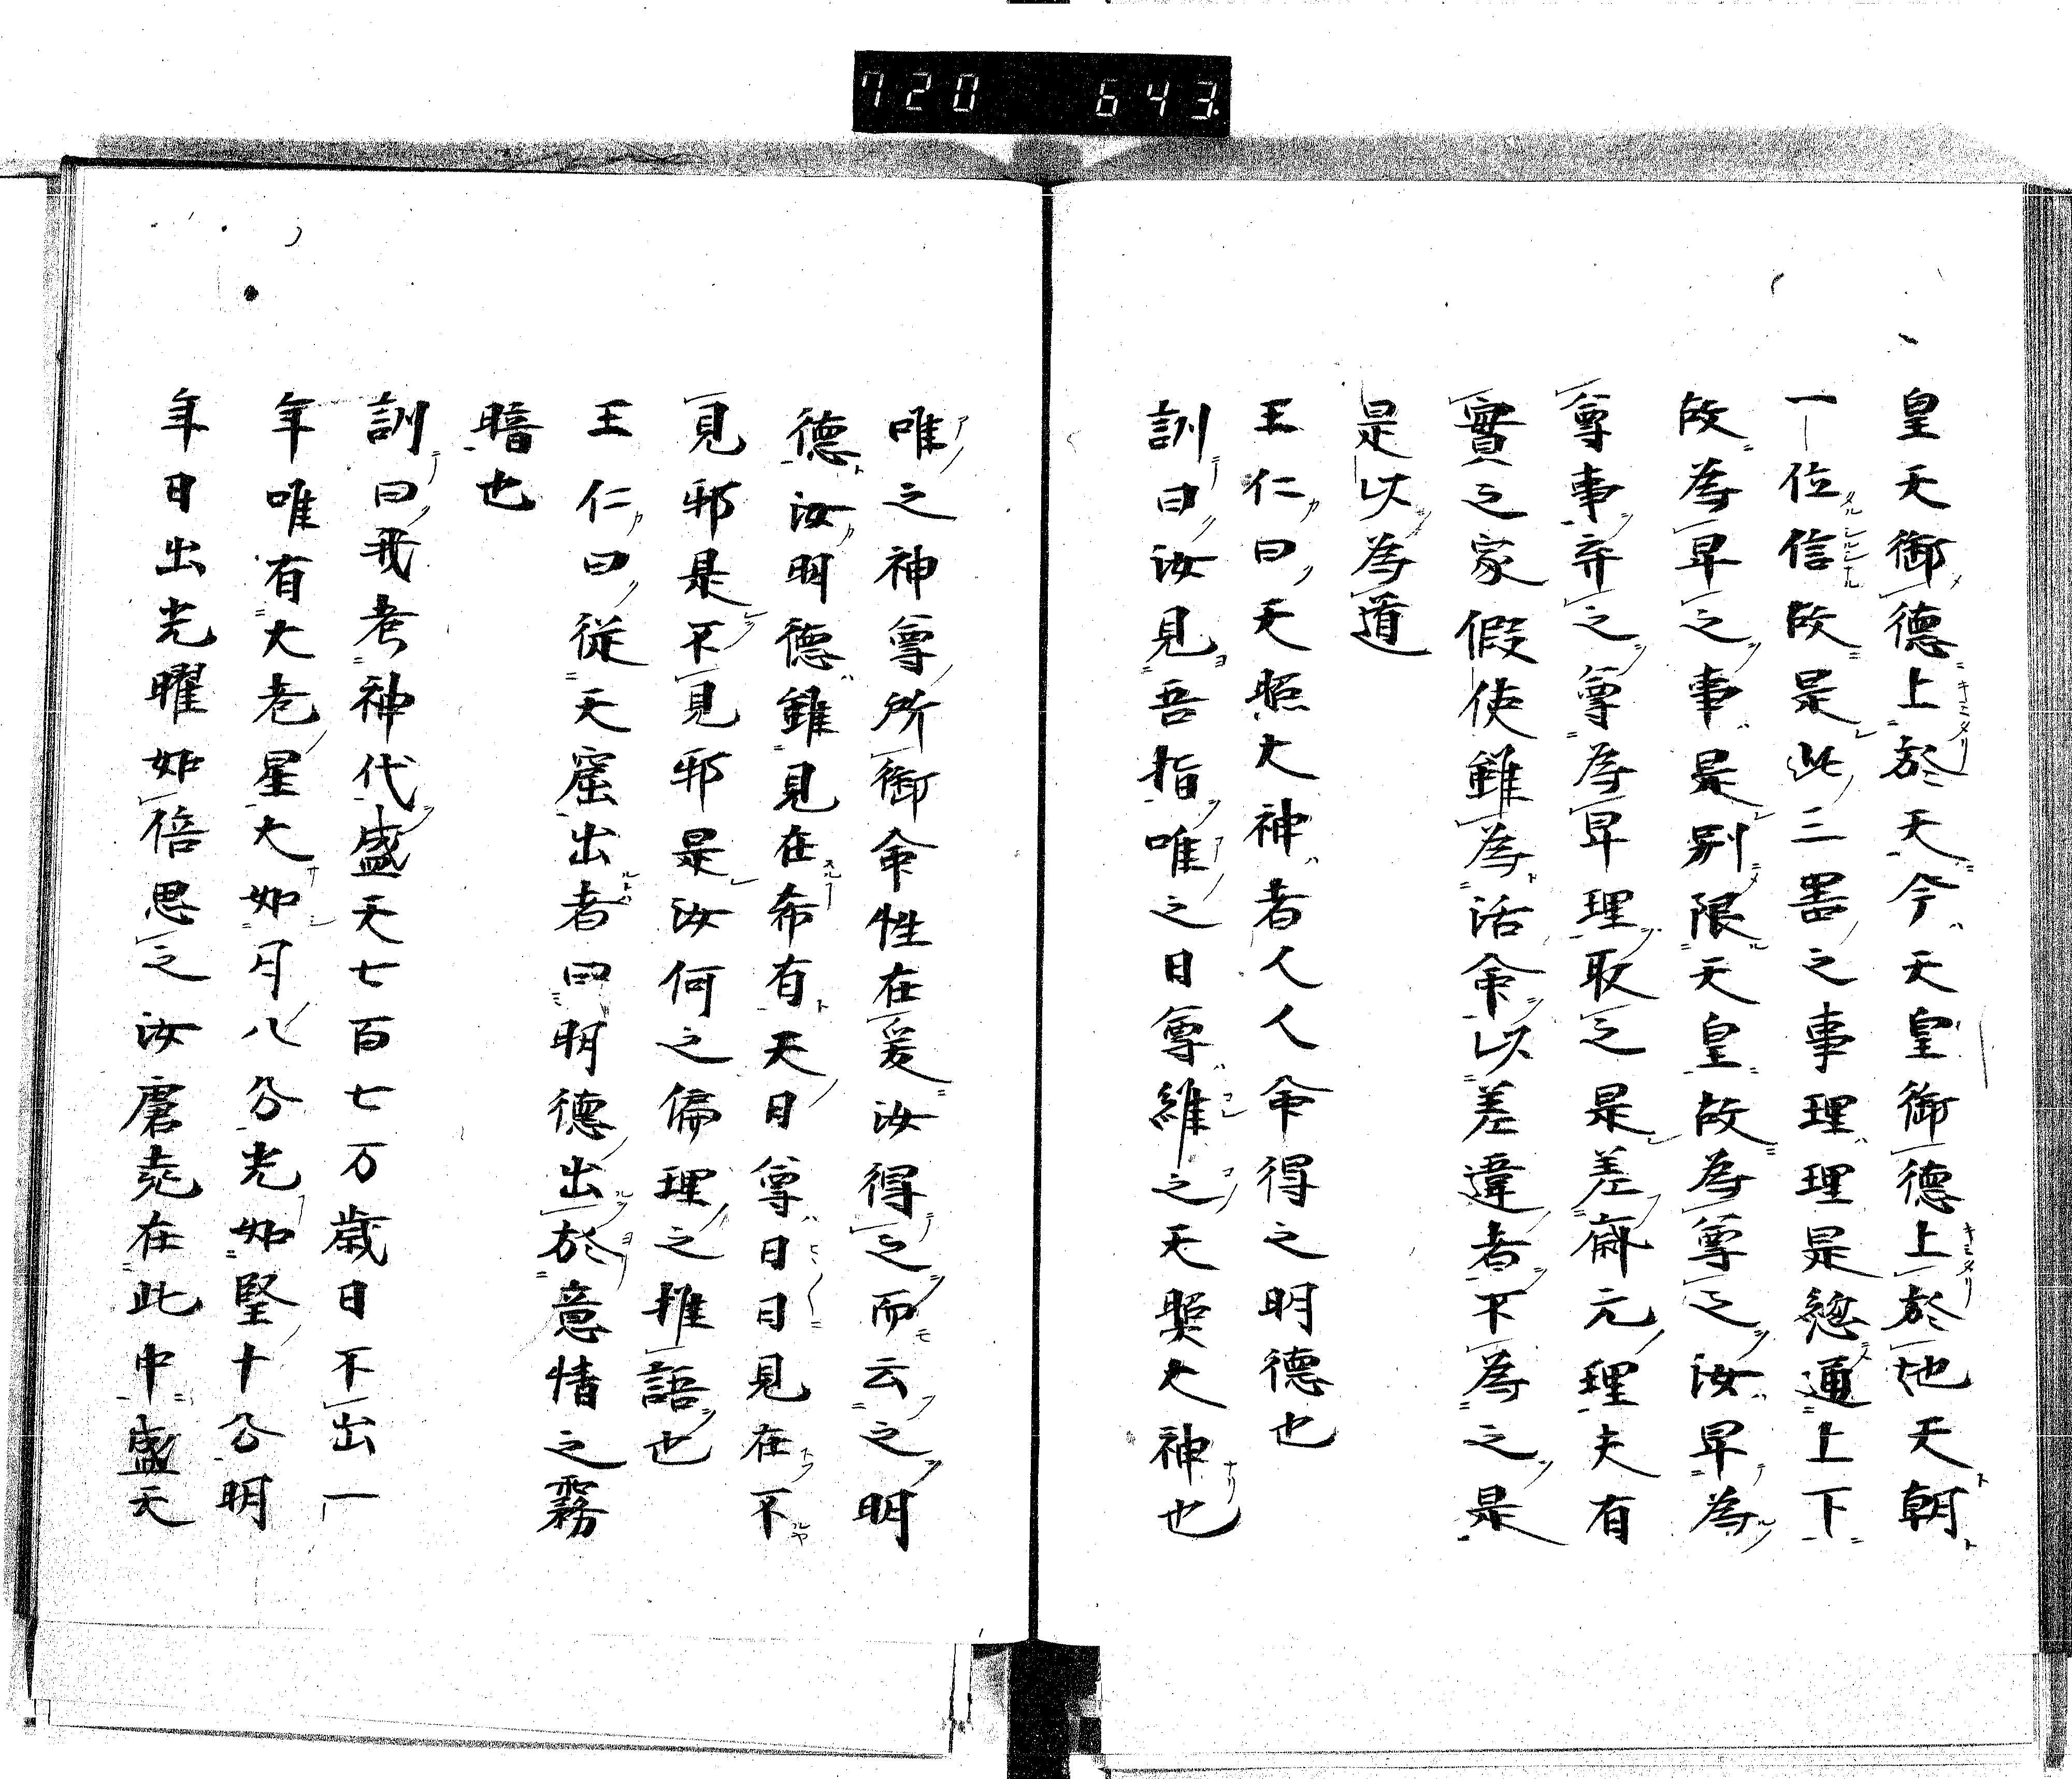 720 643
皇天御德上於天今天皇御德上於地天朝
一位信故是此三器之事理理是總通上下
故為卑之事是別限天皇故為尊之汝早為
尊事弃之尊為卑理取之是差齋元理夫有
實之家假使雖為活命以差違者不為之是
是以為道
王仁曰天照大神者人人命得之明德也
訓曰汝見吾指唯之日尊維之天照大神也
唯之神尊所御命性在爰汝得之而云之明
德汝明德雖見在希有天日尊日日見在不
見邪是不見邪是汝何之偏理之推語也
王仁曰從天窟出者曰明德出於意情之霧
暗也
訓曰我考神代盛天七百七万歲日不出一
年唯有大老星大如月八分光如堅十分明
年日出光曜如倍思之汝唐堯在此中盛天